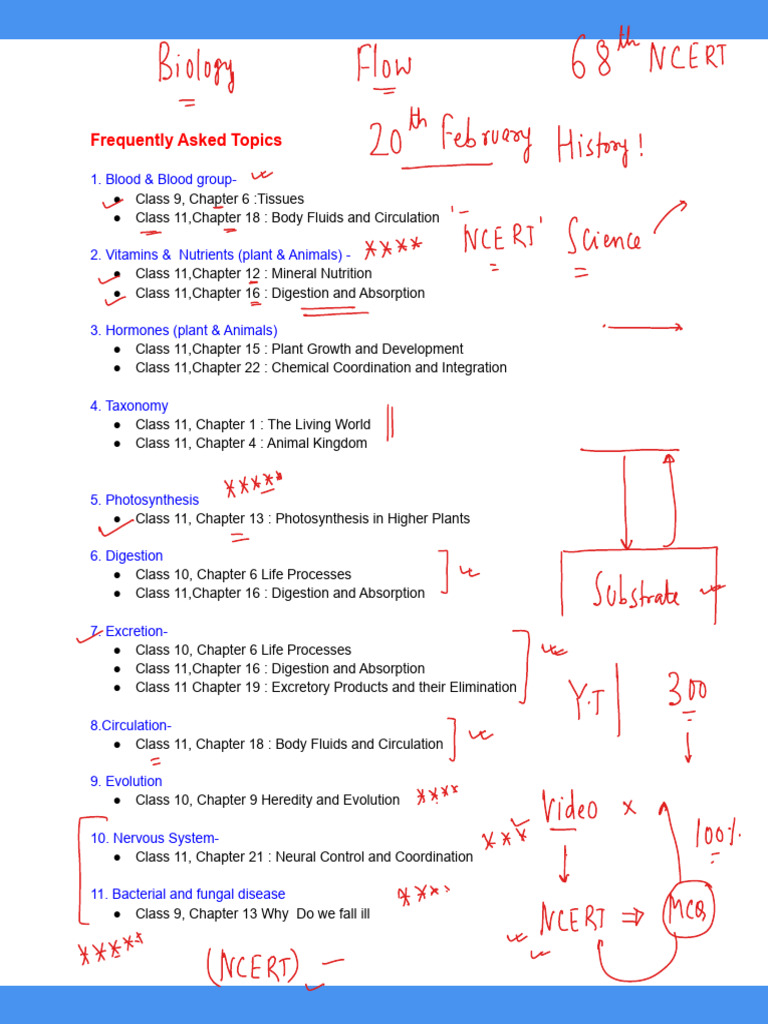 Biology Flow 68th NCERT
20th February History!
Frequently Asked Topics
1. Blood & Blood group-
● Class 9, Chapter 6 :Tissues
● Class 11,Chapter 18 : Body Fluids and Circulation
'NCERT' Science
2. Vitamins &  Nutrients (plant & Animals) - ****
● Class 11,Chapter 12 : Mineral Nutrition
● Class 11,Chapter 16 : Digestion and Absorption
3. Hormones (plant & Animals)
● Class 11,Chapter 15 : Plant Growth and Development
● Class 11,Chapter 22 : Chemical Coordination and Integration
4. Taxonomy
● Class 11, Chapter 1 : The Living World
● Class 11, Chapter 4 : Animal Kingdom
5. Photosynthesis *****
● Class 11, Chapter 13 : Photosynthesis in Higher Plants
6. Digestion
● Class 10, Chapter 6 Life Processes
● Class 11,Chapter 16 : Digestion and Absorption
Substrate
7. Excretion-
● Class 10, Chapter 6 Life Processes
● Class 11,Chapter 16 : Digestion and Absorption
● Class 11 Chapter 19 : Excretory Products and their Elimination
Y.T 300
8.Circulation-
● Class 11, Chapter 18 : Body Fluids and Circulation
9. Evolution
● Class 10, Chapter 9 Heredity and Evolution ****
Video x
100%
10. Nervous System- ***
● Class 11, Chapter 21 : Neural Control and Coordination
11. Bacterial and fungal disease ***
● Class 9, Chapter 13 Why  Do we fall ill
NCERT ⇒ MCQ
*****
(NCERT) -